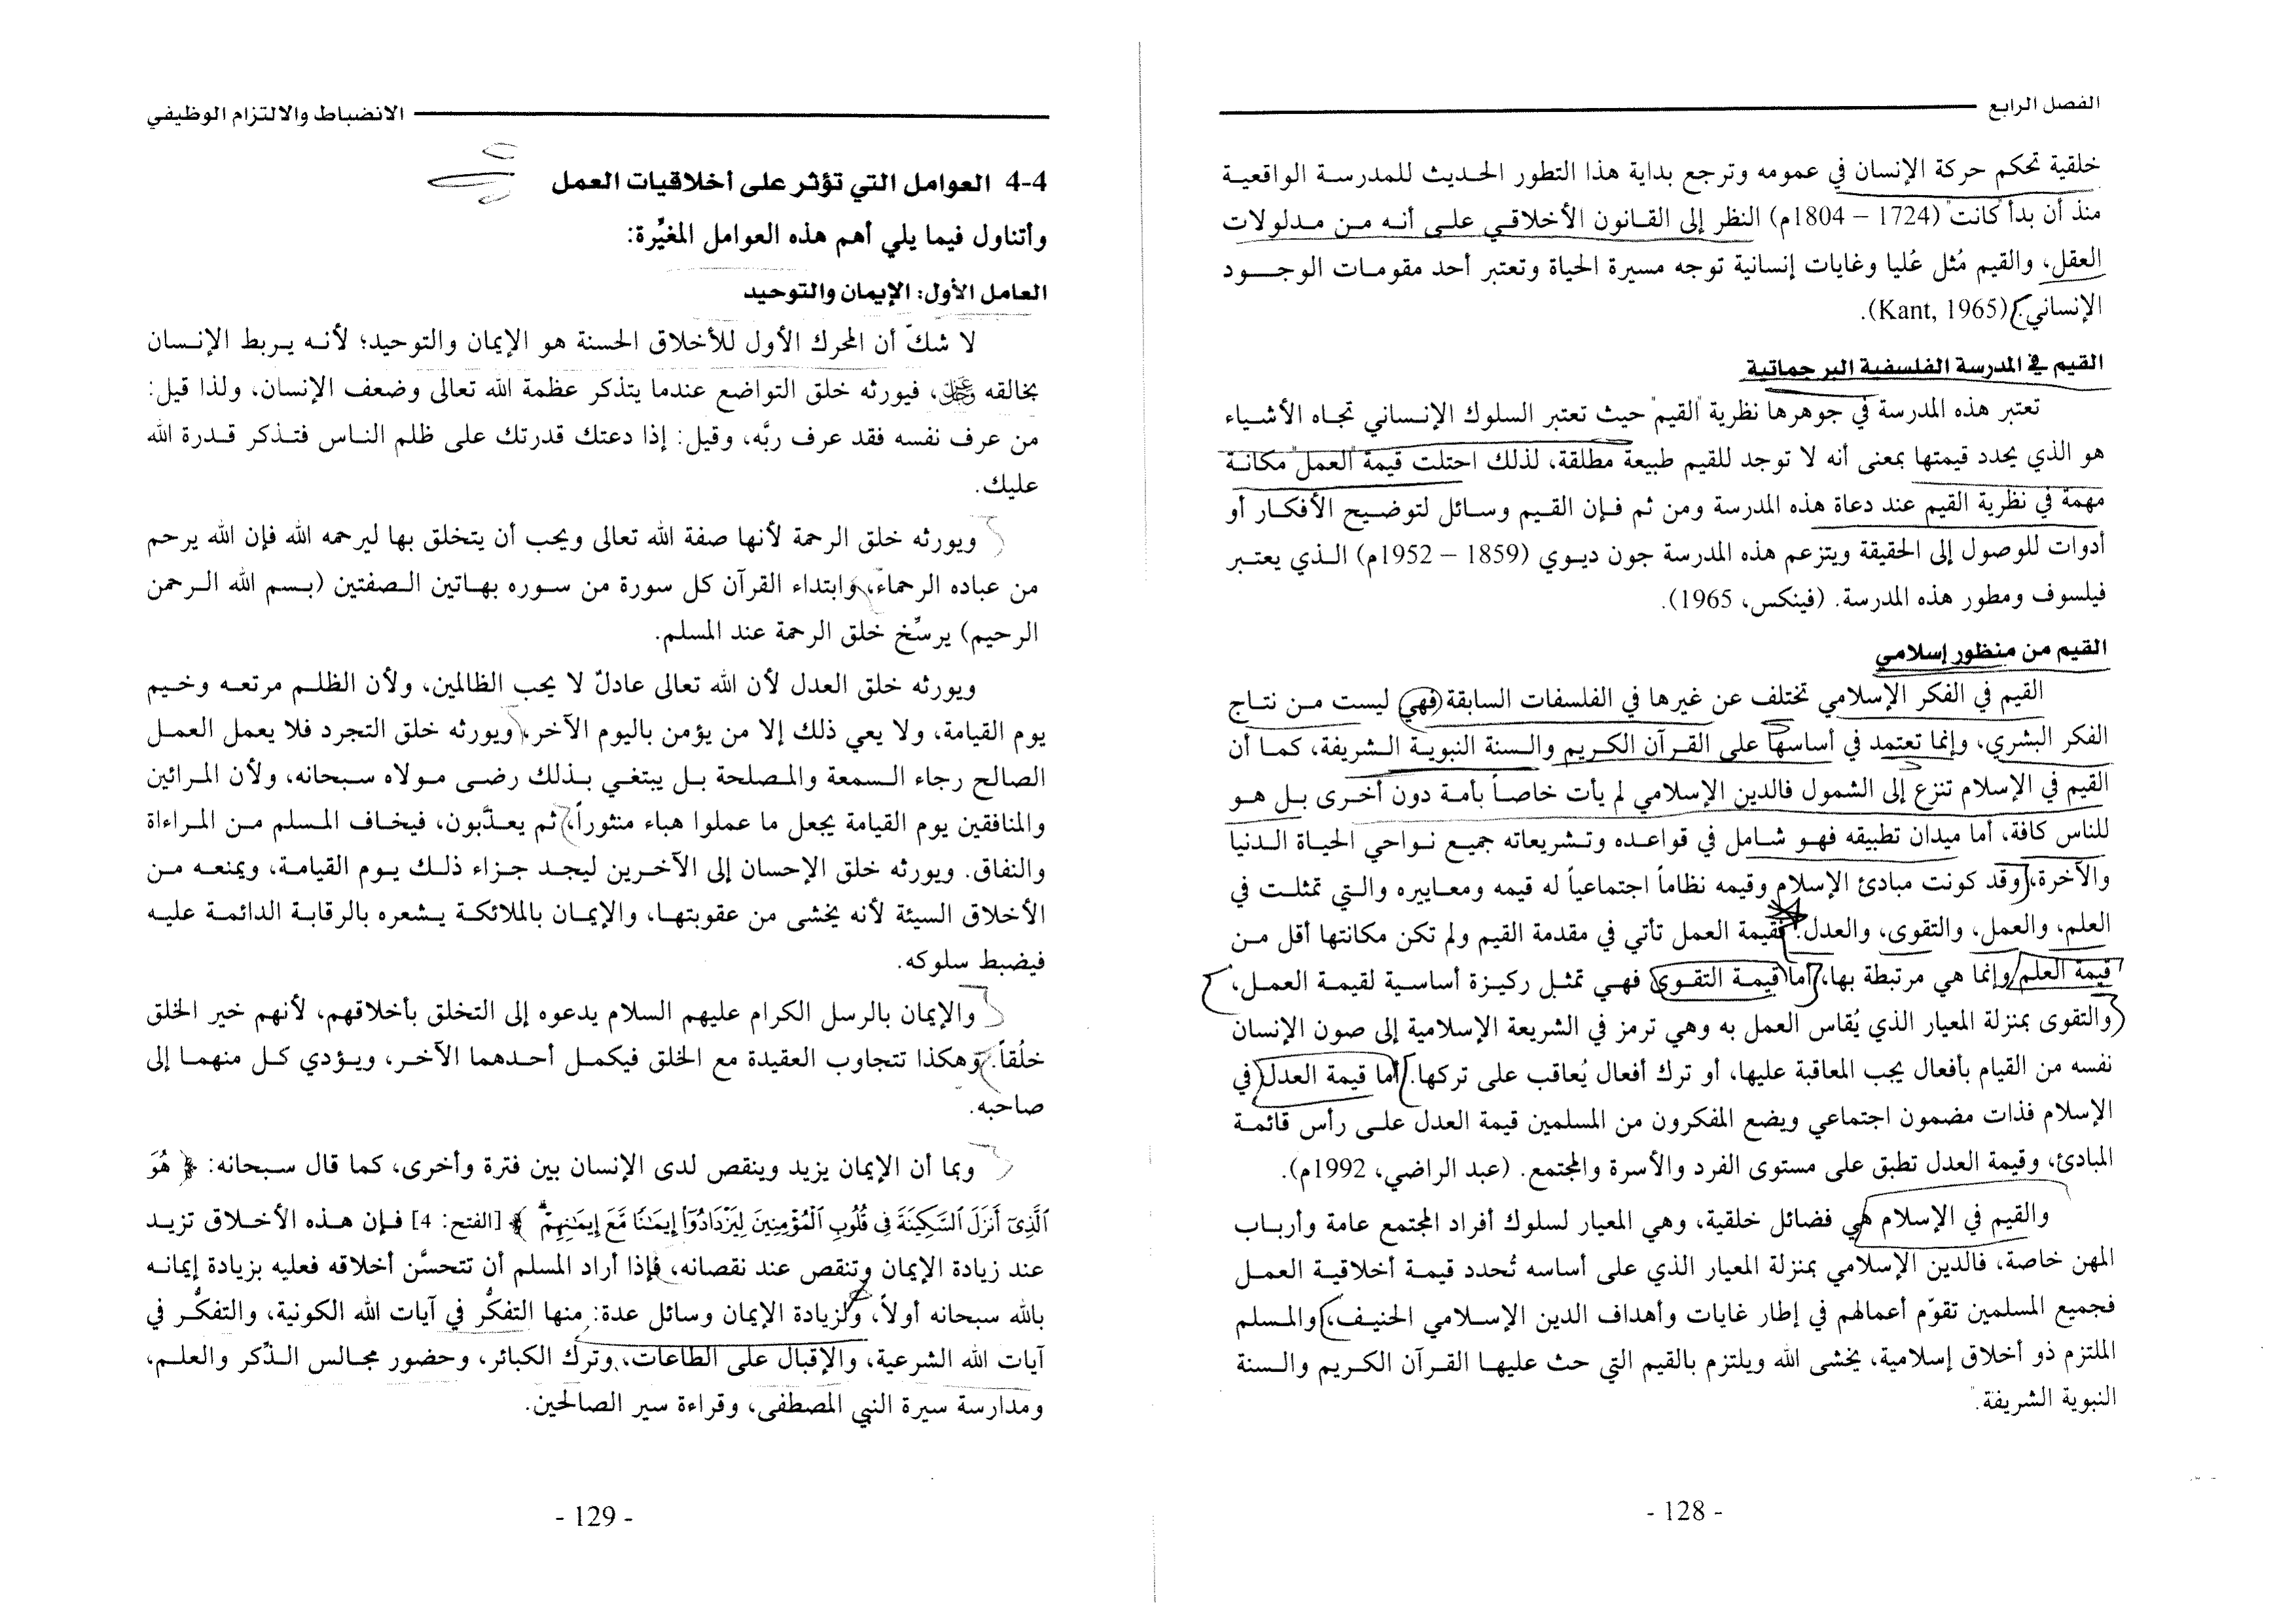 الفصل الرابع
خلقية تحكم حركة الإنسان في عمومه وترجع بداية هذا التطور الحديث للمدرسة الواقعية
منذ أن بدأ "كانت" (1724 – 1804م) النظر إلى القانون الأخلاقي على أنه من مدلولات
العقل، والقيم مُثل عُليا وغايات إنسانية توجه مسيرة الحياة وتعتبر أحد مقومات الوجود
الإنساني. (Kant, 1965).
القيم في المدرسة الفلسفية البرجماتية
تعتبر هذه المدرسة في جوهرها نظرية "القيم" حيث تعتبر السلوك الإنساني تجاه الأشياء
هو الذي يحدد قيمتها بمعنى أنه لا توجد للقيم طبيعة مطلقة، لذلك احتلت قيمة "العمل" مكانة
مهمة في نظرية القيم عند دعاة هذه المدرسة ومن ثم فإن القيم وسائل لتوضيح الأفكار أو
أدوات للوصول إلى الحقيقة ويتزعم هذه المدرسة جون ديوي (1859 – 1952م) الذي يعتبر
فيلسوف ومطور هذه المدرسة. (فينكس، 1965).
القيم من منظور إسلامي
القيم في الفكر الإسلامي تختلف عن غيرها في الفلسفات السابقة فهي ليست من نتاج
الفكر البشري، وإنما تعتمد في أساسها على القرآن الكريم والسنة النبوية الشريفة، كما أن
القيم في الإسلام تنزع إلى الشمول فالدين الإسلامي لم يأت خاصاً بأمة دون أخرى بل هو
للناس كافة، أما ميدان تطبيقه فهو شامل في قواعده وتشريعاته جميع نواحي الحياة الدنيا
والآخرة، وقد كونت مبادئ الإسلام وقيمه نظاماً اجتماعياً له قيمه ومعاييره والتي تمثلت في
العلم، والعمل، والتقوى، والعدل. فقيمة العمل تأتي في مقدمة القيم ولم تكن مكانتها أقل من
قيمة العلم وإنما هي مرتبطة بها، أما قيمة التقوى فهي تمثل ركيزة أساسية لقيمة العمل،
والتقوى بمنزلة المعيار الذي يُقاس العمل به وهي ترمز في الشريعة الإسلامية إلى صون الإنسان
نفسه من القيام بأفعال يجب المعاقبة عليها، أو ترك أفعال يُعاقب على تركها. أما قيمة العدل في
الإسلام فذات مضمون اجتماعي ويضع المفكرون من المسلمين قيمة العدل على رأس قائمة
المبادئ، وقيمة العدل تطبق على مستوى الفرد والأسرة والمجتمع. (عبد الراضي، 1992م).
والقيم في الإسلام هي فضائل خلقية، وهي المعيار لسلوك أفراد المجتمع عامة وأرباب
المهن خاصة، فالدين الإسلامي بمنزلة المعيار الذي على أساسه تُحدد قيمة أخلاقية العمل
فجميع المسلمين تقوّم أعمالهم في إطار غايات وأهداف الدين الإسلامي الحنيف، والمسلم
الملتزم ذو أخلاق إسلامية، يخشى الله ويلتزم بالقيم التي حث عليها القرآن الكريم والسنة
النبوية الشريفة.
- 128 -
الانضباط والالتزام الوظيفي
4-4 العوامل التي تؤثر على أخلاقيات العمل
وأتناول فيما يلي أهم هذه العوامل المغيِّرة:
العامل الأول: الإيمان والتوحيد
لا شكّ أن المحرك الأول للأخلاق الحسنة هو الإيمان والتوحيد؛ لأنه يربط الإنسان
بخالقه عزوجل، فيورثه خلق التواضع عندما يتذكر عظمة الله تعالى وضعف الإنسان، ولذا قيل:
من عرف نفسه فقد عرف ربَّه، وقيل: إذا دعتك قدرتك على ظلم الناس فتذكر قدرة الله
عليك.
ويورثه خلق الرحمة لأنها صفة الله تعالى ويجب أن يتخلق بها ليرحمه الله فإن الله يرحم
من عباده الرحماء، وابتداء القرآن كل سورة من سوره بهاتين الصفتين (بسم الله الرحمن
الرحيم) يرسِّخ خلق الرحمة عند المسلم.
ويورثه خلق العدل لأن الله تعالى عادلٌ لا يحب الظالمين، ولأن الظلم مرتعه وخيم
يوم القيامة، ولا يعي ذلك إلا من يؤمن باليوم الآخر، ويورثه خلق التجرد فلا يعمل العمل
الصالح رجاء السمعة والمصلحة بل يبتغي بذلك رضى مولاه سبحانه، ولأن المرائين
والمنافقين يوم القيامة يجعل ما عملوا هباء منثوراً، ثم يعذَّبون، فيخاف المسلم من المراءاة
والنفاق. ويورثه خلق الإحسان إلى الآخرين ليجد جزاء ذلك يوم القيامة، ويمنعه من
الأخلاق السيئة لأنه يخشى من عقوبتها، والإيمان بالملائكة يشعره بالرقابة الدائمة عليه
فيضبط سلوكه.
والإيمان بالرسل الكرام عليهم السلام يدعوه إلى التخلق بأخلاقهم، لأنهم خير الخلق
خلُقاً. وهكذا تتجاوب العقيدة مع الخلق فيكمل أحدهما الآخر، ويؤدي كل منهما إلى
صاحبه.
وبما أن الإيمان يزيد وينقص لدى الإنسان بين فترة وأخرى، كما قال سبحانه: ﴿ هُوَ
ٱلَّذِىٓ أَنزَلَ ٱلسَّكِينَةَ فِى قُلُوبِ ٱلْمُؤْمِنِينَ لِيَزْدَادُوٓا۟ إِيمَـٰنًا مَّعَ إِيمَـٰنِهِمْ ۗ ﴾ [الفتح: 4] فإن هذه الأخلاق تزيد
عند زيادة الإيمان وتنقص عند نقصانه، فإذا أراد المسلم أن تتحسَّن أخلاقه فعليه بزيادة إيمانه
بالله سبحانه أولاً، ولزيادة الإيمان وسائل عدة: منها التفكُّر في آيات الله الكونية، والتفكُّر في
آيات الله الشرعية، والإقبال على الطاعات، وترك الكبائر، وحضور مجالس الذّكر والعلم،
ومدارسة سيرة النبي المصطفى، وقراءة سير الصالحين.
- 129 -